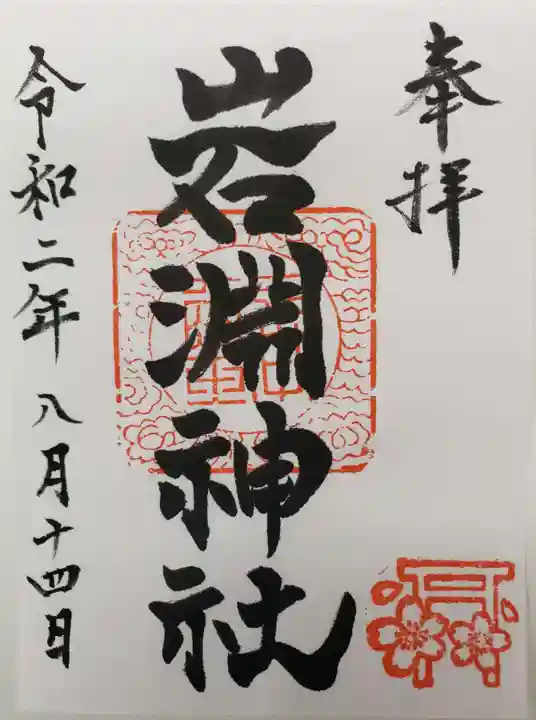 奉拝
岩淵神社
令和二年八月十四日